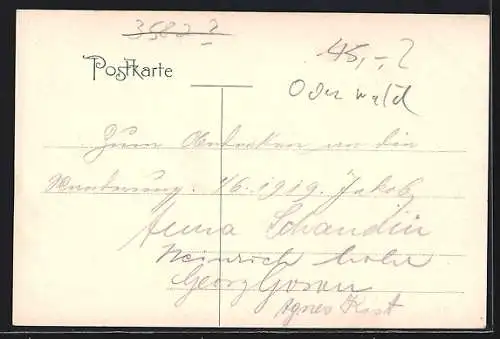 35822
45,- 2
Postkarte
Odenwald
Zum Andenken an die
Wanderung. 1/6. 1919. Jakob
Anna Schandin
Heinrich
Georg
Agnes Kost